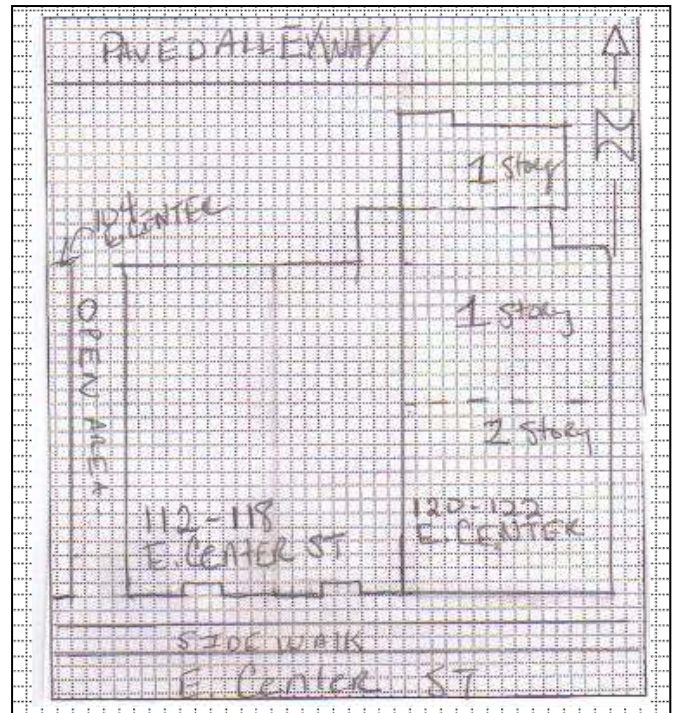 PAVED ALLEYWAY
1 Story
104
E. CENTER
OPEN AREA
1 Story
2 Story
112-118
E. CENTER ST
120-122
E. CENTER
SIDEWALK
E. Center ST